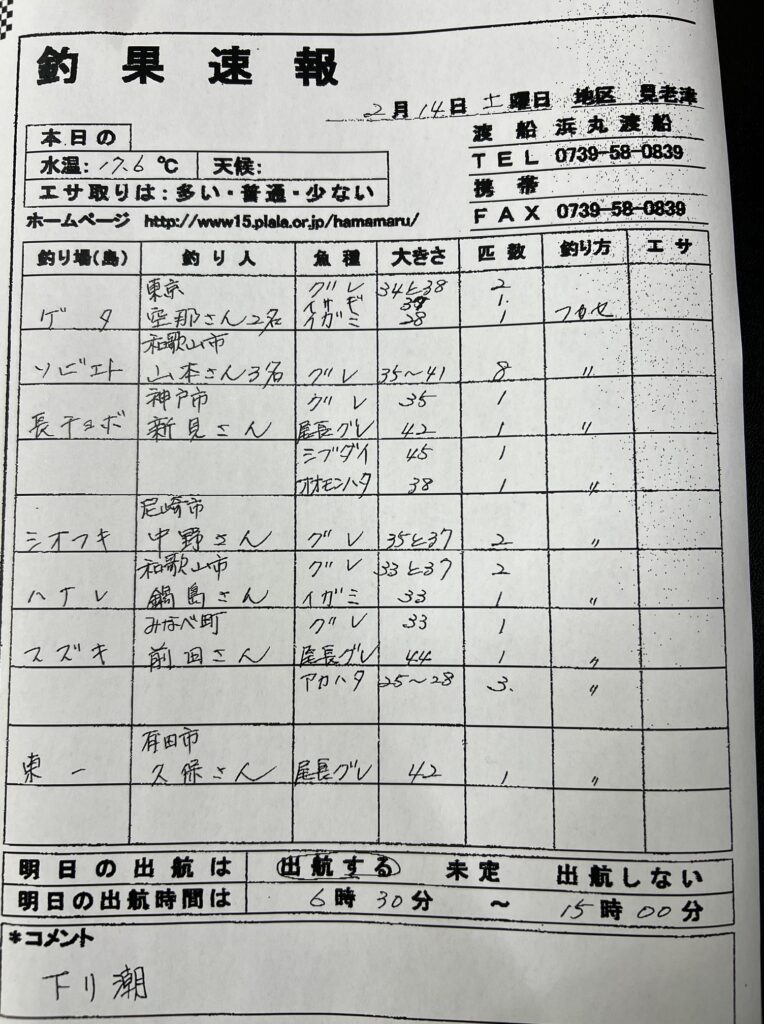 釣果速報
2月14日 土曜日 地区 見老津
本日の
水温:17.6℃ 天候:
エサ取りは:多い・普通・少ない
渡船 浜丸渡船
TEL 0739-58-0839
携帯
FAX 0739-58-0839
ホームページ http://www15.plala.or.jp/hamamaru/
釣り場(島) 釣り人 魚種 大きさ 匹数 釣り方 エサ
東京 グレ 34と38 2
イサギ 37 1
ゲタ さん2名 イガミ 28 1 フカセ
和歌山市
ソビエト 山本さん3名 グレ 35〜41 8 〃
神戸市 グレ 35 1
長チョボ 新見さん 尾長グレ 42 1 〃
シブダイ 45 1
オオモンハタ 38 1 〃
尼崎市
シオフキ 中野さん グレ 35と37 2 〃
和歌山市 グレ 33と37 2
ハナレ 鍋島さん イガミ 33 1 〃
みなべ町 グレ 33 1
スズキ 前田さん 尾長グレ 44 1 〃
アカハタ 25〜28 3. 〃
有田市
東一 久保さん 尾長グレ 42 1 〃
明日の出航は 出航する 未定 出航しない
明日の出航時間は 6時30分 〜 15時00分
*コメント
下り潮